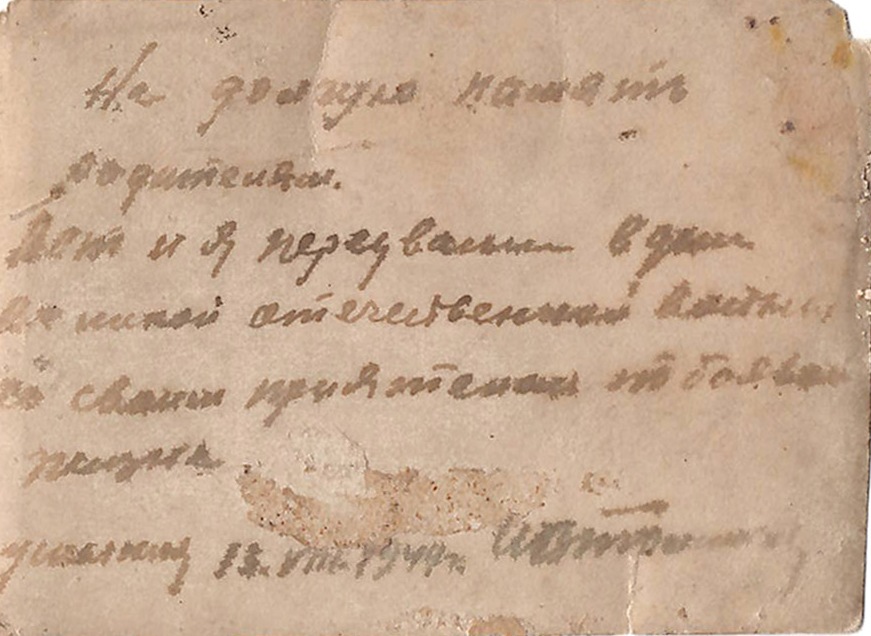 На долгую память
родителям.
Вот и я перед вами в дни
великой отечественной войны
со своим приятелем по боевой
жизни
13. VIII. 1944 г.